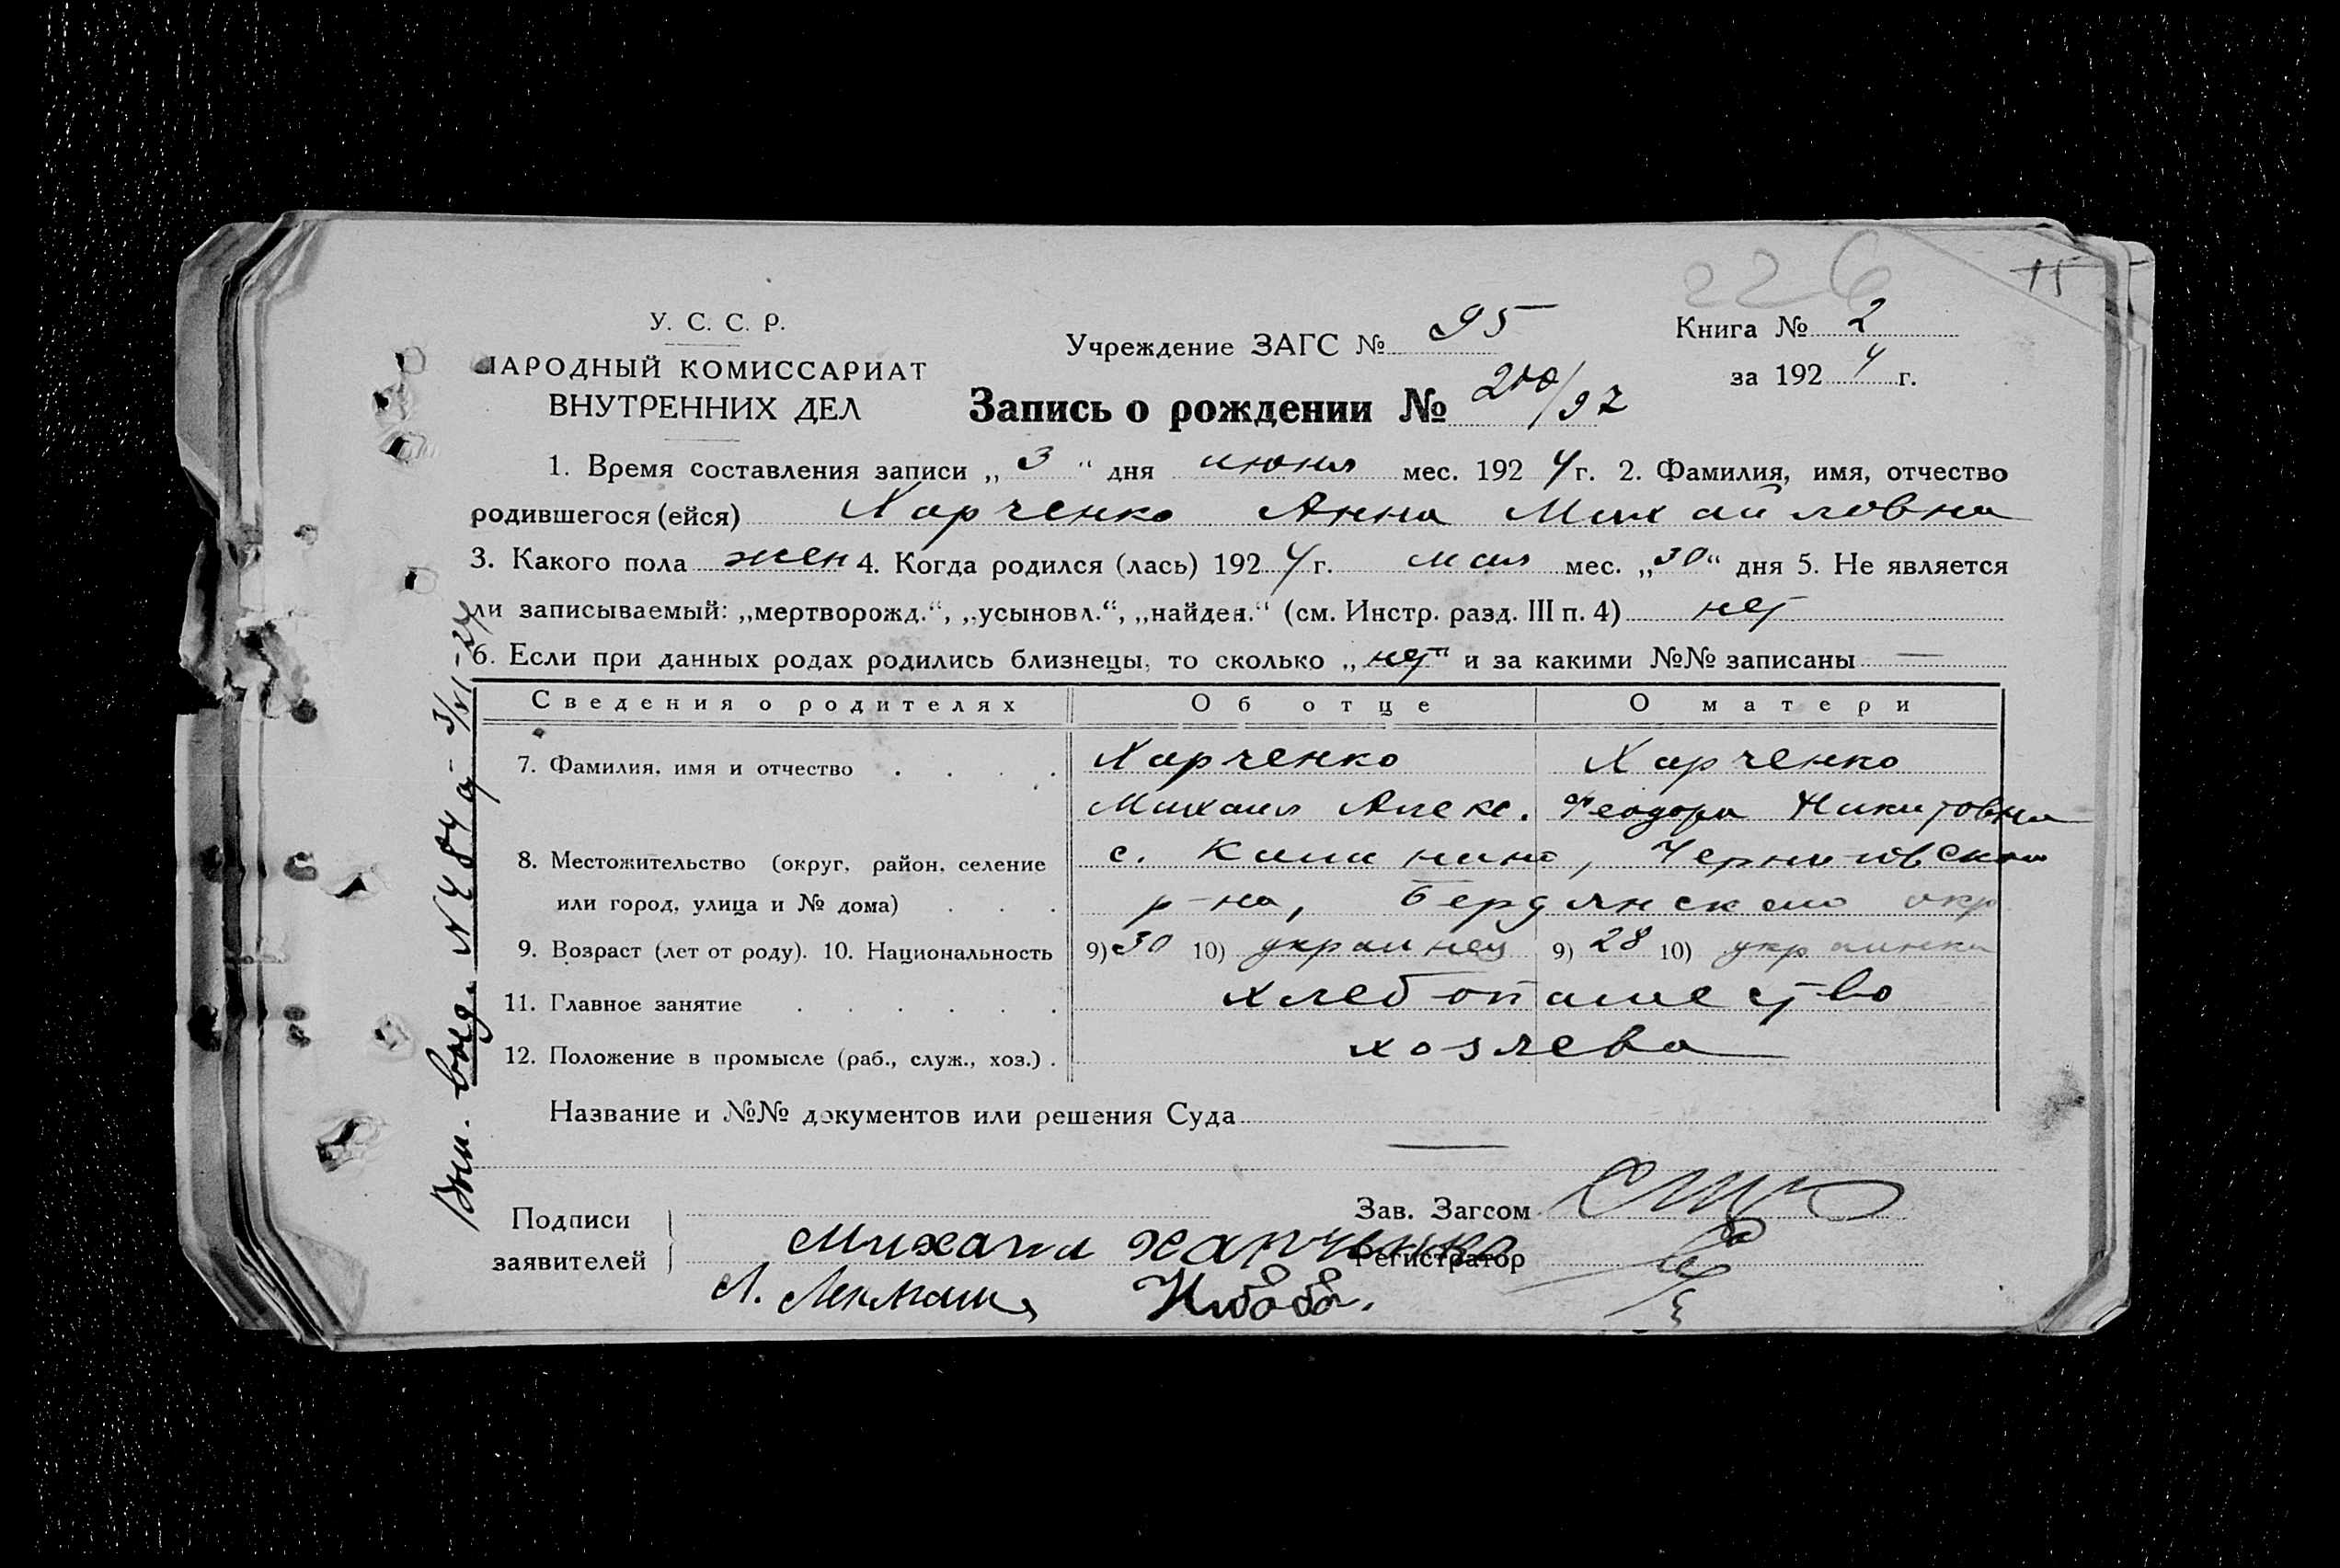 226
15
У. С. С. Р.
НАРОДНЫЙ КОМИССАРИАТ
ВНУТРЕННИХ ДЕЛ
Учреждение ЗАГС № 95
Книга № 2
за 1924 г.
Запись о рождении № 200/97
1. Время составления записи „3“ дня июня мес. 1924 г. 2. Фамилия, имя, отчество
родившегося (ейся) Харченко Анна Михайловна
3. Какого пола жен 4. Когда родился (лась) 1924 г. мая мес. „30“ дня 5. Не является
ли записываемый: „мертворожд.“, „усыновл.“, „найден.“ (см. Инстр. разд. III п. 4) нет
6. Если при данных родах родились близнецы, то сколько „нет“ и за какими №№ записаны —
Сведения о родителях Об отце О матери
7. Фамилия, имя и отчество . . . . Харченко Харченко
Михаил Алекс. Феодора Никитовна
8. Местожительство (округ, район, селение с. Калинино, Черниговского
или город, улица и № дома) . . . р-на, Бердянского окр
9. Возраст (лет от роду). 10. Национальность 9) 30 10) украинец 9) 28 10) украинка
11. Главное занятие . . . . . . хлебопашество
12. Положение в промысле (раб., служ., хоз.) . хозяева
Название и №№ документов или решения Суда —
Подписи
заявителей
Зав. Загсом
Михаил Харченко
Регистратор